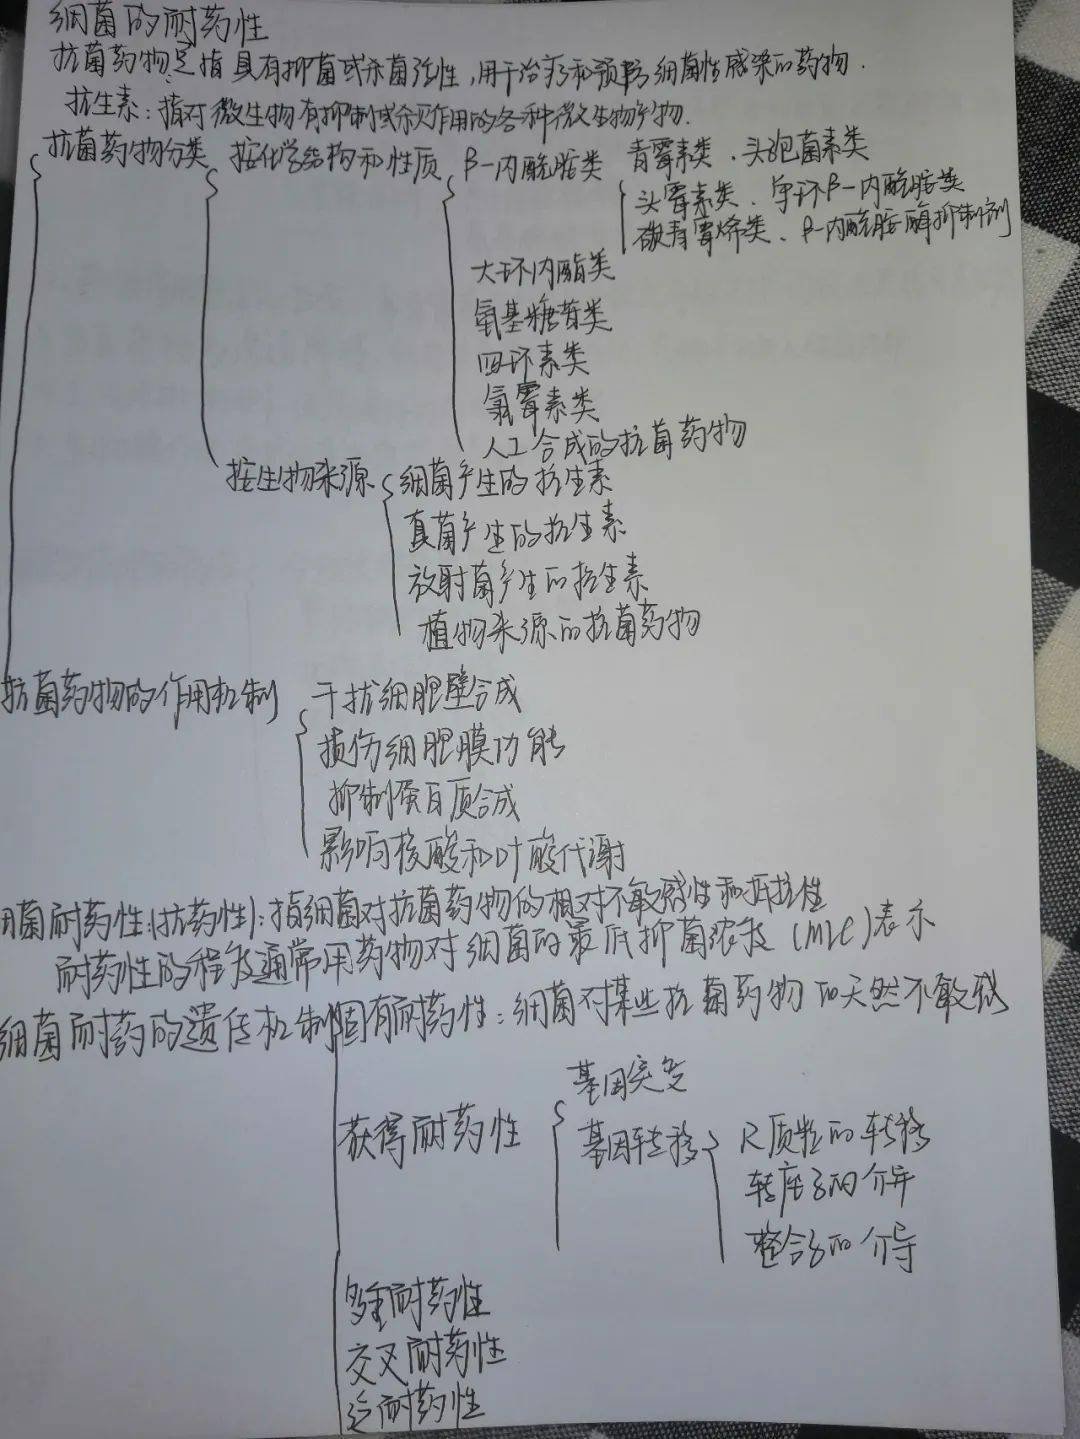 细菌的耐药性
抗菌药物是指具有抑菌或杀菌活性,用于治疗和预防细菌性感染的药物.
抗生素:指对微生物有抑制或杀灭作用的各种微生物产物.
抗菌药物分类 按化学结构和性质 β-内酰胺类 青霉素类、头孢菌素类
头霉素类、单环β-内酰胺类
碳青霉烯类、β-内酰胺酶抑制剂
大环内酯类
氨基糖苷类
四环素类
氯霉素类
人工合成的抗菌药物
按生物来源 细菌产生的抗生素
真菌产生的抗生素
放射菌产生的抗生素
植物来源的抗菌药物
抗菌药物的作用机制 干扰细胞壁合成
损伤细胞膜功能
抑制蛋白质合成
影响核酸和叶酸代谢
细菌耐药性(抗药性):指细菌对抗菌药物的相对不敏感性和抵抗性
耐药性的程度通常用药物对细菌的最低抑菌浓度(MIC)表示
细菌耐药的遗传机制 固有耐药性:细菌对某些抗菌药物的天然不敏感
基因突变
获得耐药性 基因转移 R质粒的转移
转座子的介导
整合子的介导
多重耐药性
交叉耐药性
泛耐药性